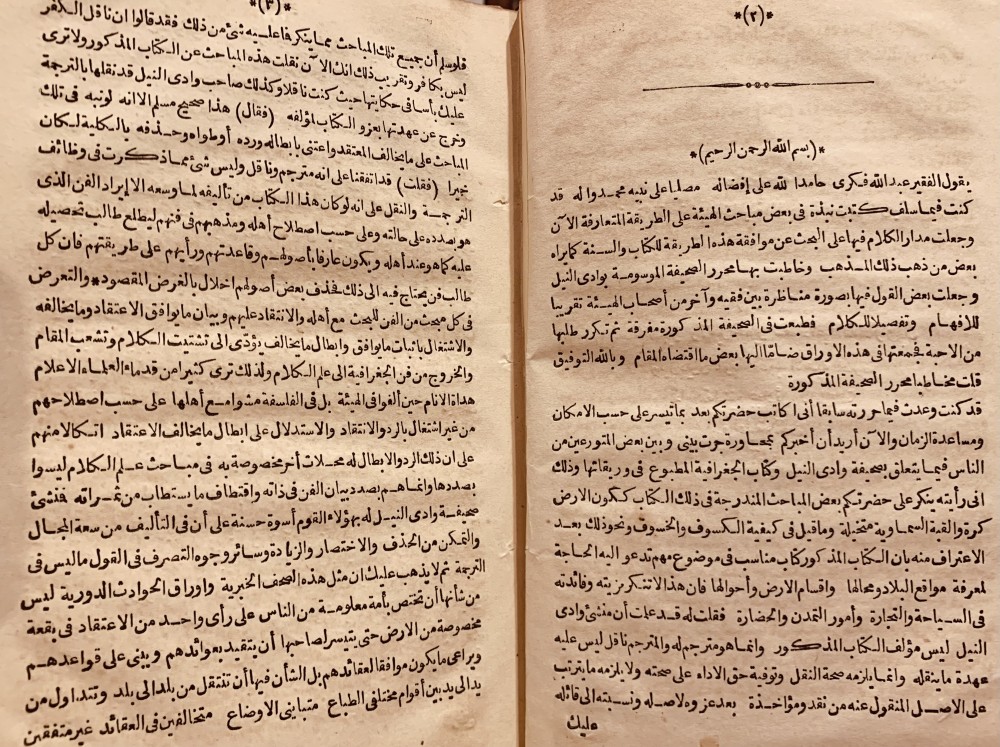 *(٢)*
*(بسم الله الرحمن الرحيم)*
يقول الفقير عبد الله فكرى حامدا لله على إفضاله مصليا على نبيه محمد وآله قد
كنت فيما سلف كتبت نبذة فى بعض مباحث الهيئة على الطريقة المتعارفة الآن
وجعلت مدار الكلام فيها على البحث عن موافقة هذه الطريقة للكتاب والسنة كما يراه
بعض من ذهب ذلك المذهب وخاطبت بها محرر الصحيفة الموسومة بوادى النيل
وجعلت بعض القول فيها بصورة مناظرة بين فقيه وآخر من أصحاب الهيئة تقريبا
للافهام وتفصيلا للكلام فطبعت فى الصحيفة المذكورة مفرقة ثم تكرر طلبها
من الاحبة فجمعتها فى هذه الاوراق ضاما اليها بعض ما اقتضاه المقام وبالله التوفيق
قلت مخاطبا محرر الصحيفة المذكورة
قد كنت وعدت فيما حررته سابقا أنى اكاتب حضرتكم بعد بما تيسر على حسب الامكان
ومساعدة الزمان والآن أريد أن أخبركم بمحاورة جرت بينى وبين بعض المتورعين من
الناس فيما يتعلق بصحيفة وادى النيل وكتاب الجغرافية المطبوع فى وريقاتها وذلك
انى رأيته ينكر على حضرتكم بعض المباحث المندرجة فى ذلك الكتاب ككون الارض
كرة والقبة السماوية متخيلة وما قيل فى كيفية الكسوف والخسوف ونحو ذلك بعد
الاعتراف منه بان الكتاب المذكور كتاب مناسب فى موضوع مهم تدعو اليه الحاجة
لمعرفة مواقع البلاد ومحالها واقسام الارض وأحوالها فان هذا لا تنكر مزيته وفائدته
فى السياحة والتجارة وأمور التمدن والحضارة فقلت له قد علمت أن منشئ وادى
النيل ليس مؤلف الكتاب المذكور وانما هو مترجم له والمترجم ناقل ليس عليه
عهدة ما ينقله وانما يلزمه صحة النقل وتوفية حق الاداء على صحته ولا يلزمه ما يترتب
على الاصل المنقول عنه من نقد ومؤاخذة بعد عزوه لاصله ونسبته الى قائله
عليك
*(٣)*
فلو سلم أن جميع تلك المباحث مما ينكر فما عليه شئ من ذلك فقد قالوا ان ناقل الكفر
ليس بكافر وتقريب ذلك انك الآن نقلت هذه المباحث عن الكتاب المذكور ولا ترى
عليك بأسا فى حكايتها حيث كنت ناقلا وكذلك صاحب وادى النيل قد نقلها بالترجمة
وخرج عن عهدتها بعزو الكتاب لمؤلفه (فقال) هذا صحيح مسلم الا انه لو نبه فى تلك
المباحث على ما يخالف المعتقد واعتنى بابطاله ورده أو طواه وحذفه بالكلية لكان
خيرا (فقلت) قد اتفقنا على انه مترجم وناقل وليس شئ مما ذكرت فى وظائف
الترجمة والنقل على انه لو كان هذا الكتاب من تأليفه لما وسعه الا إيراد الفن الذى
هو بصدده على حالته وعلى حسب اصطلاح أهله ومذهبهم فى فنهم ليطلع طالب تحصيله
عليه كما هو عند أهله ويكون عارفا بأصولهم وقاعدتهم ورأيهم على طريقتهم فان كل
طالب فن يحتاج فيه الى ذلك فحذف بعض أصولهم اخلال بالغرض المقصود * والتعرض
فى كل مبحث من الفن للبحث مع أهله والانتقاد عليهم وبيان ما يوافق الاعتقاد وما يخالفه
والاشتغال باثبات ما يوافق وابطال ما يخالف يؤدى الى تشتيت الكلام وتشعب المقام
والخروج من فن الجغرافية الى علم الكلام ولذلك ترى كثيرا من قدماء العلماء الاعلام
هداة الانام حين ألفوا فى الهيئة بل فى الفلسفة مشوا مع أهلها على حسب اصطلاحهم
من غير اشتغال بالرد والانتقاد والاستدلال على ابطال ما يخالف الاعتقاد اتكالا منهم
على ان ذلك الرد والابطال له محلات أخر مخصوصة به فى مباحث علم الكلام ليسوا
بصددها وانما هم بصدد بيان الفن فى ذاته واقتطاف ما يستطاب من ثمراته فمنشئ
صحيفة وادى النيل له بهؤلاء القوم أسوة حسنة على أن فى التأليف من سعة المجال
والتمكن من الحذف والاختصار والزيادة وسائر وجوه التصرف فى القول ما ليس فى
الترجمة ثم لا يذهب عليك ان مثل هذه الصحف الخبرية واوراق الحوادث الدورية ليس
من شأنها أن تختص بأمة معلومة من الناس على رأى واحد من الاعتقاد فى بقعة
مخصوصة من الارض حتى يتيسر لصاحبها أن يتقيد بعوائدهم ويبنى على قواعدهم
ويراعى ما يكون موافقا لعقائدهم بل الشأن فيها أن تنتقل من بلد الى بلد وتتداول من
يد الى يد بين أقوام مختلفى الطباع متباينى الاوضاع متخالفين فى العقائد غير متفقين